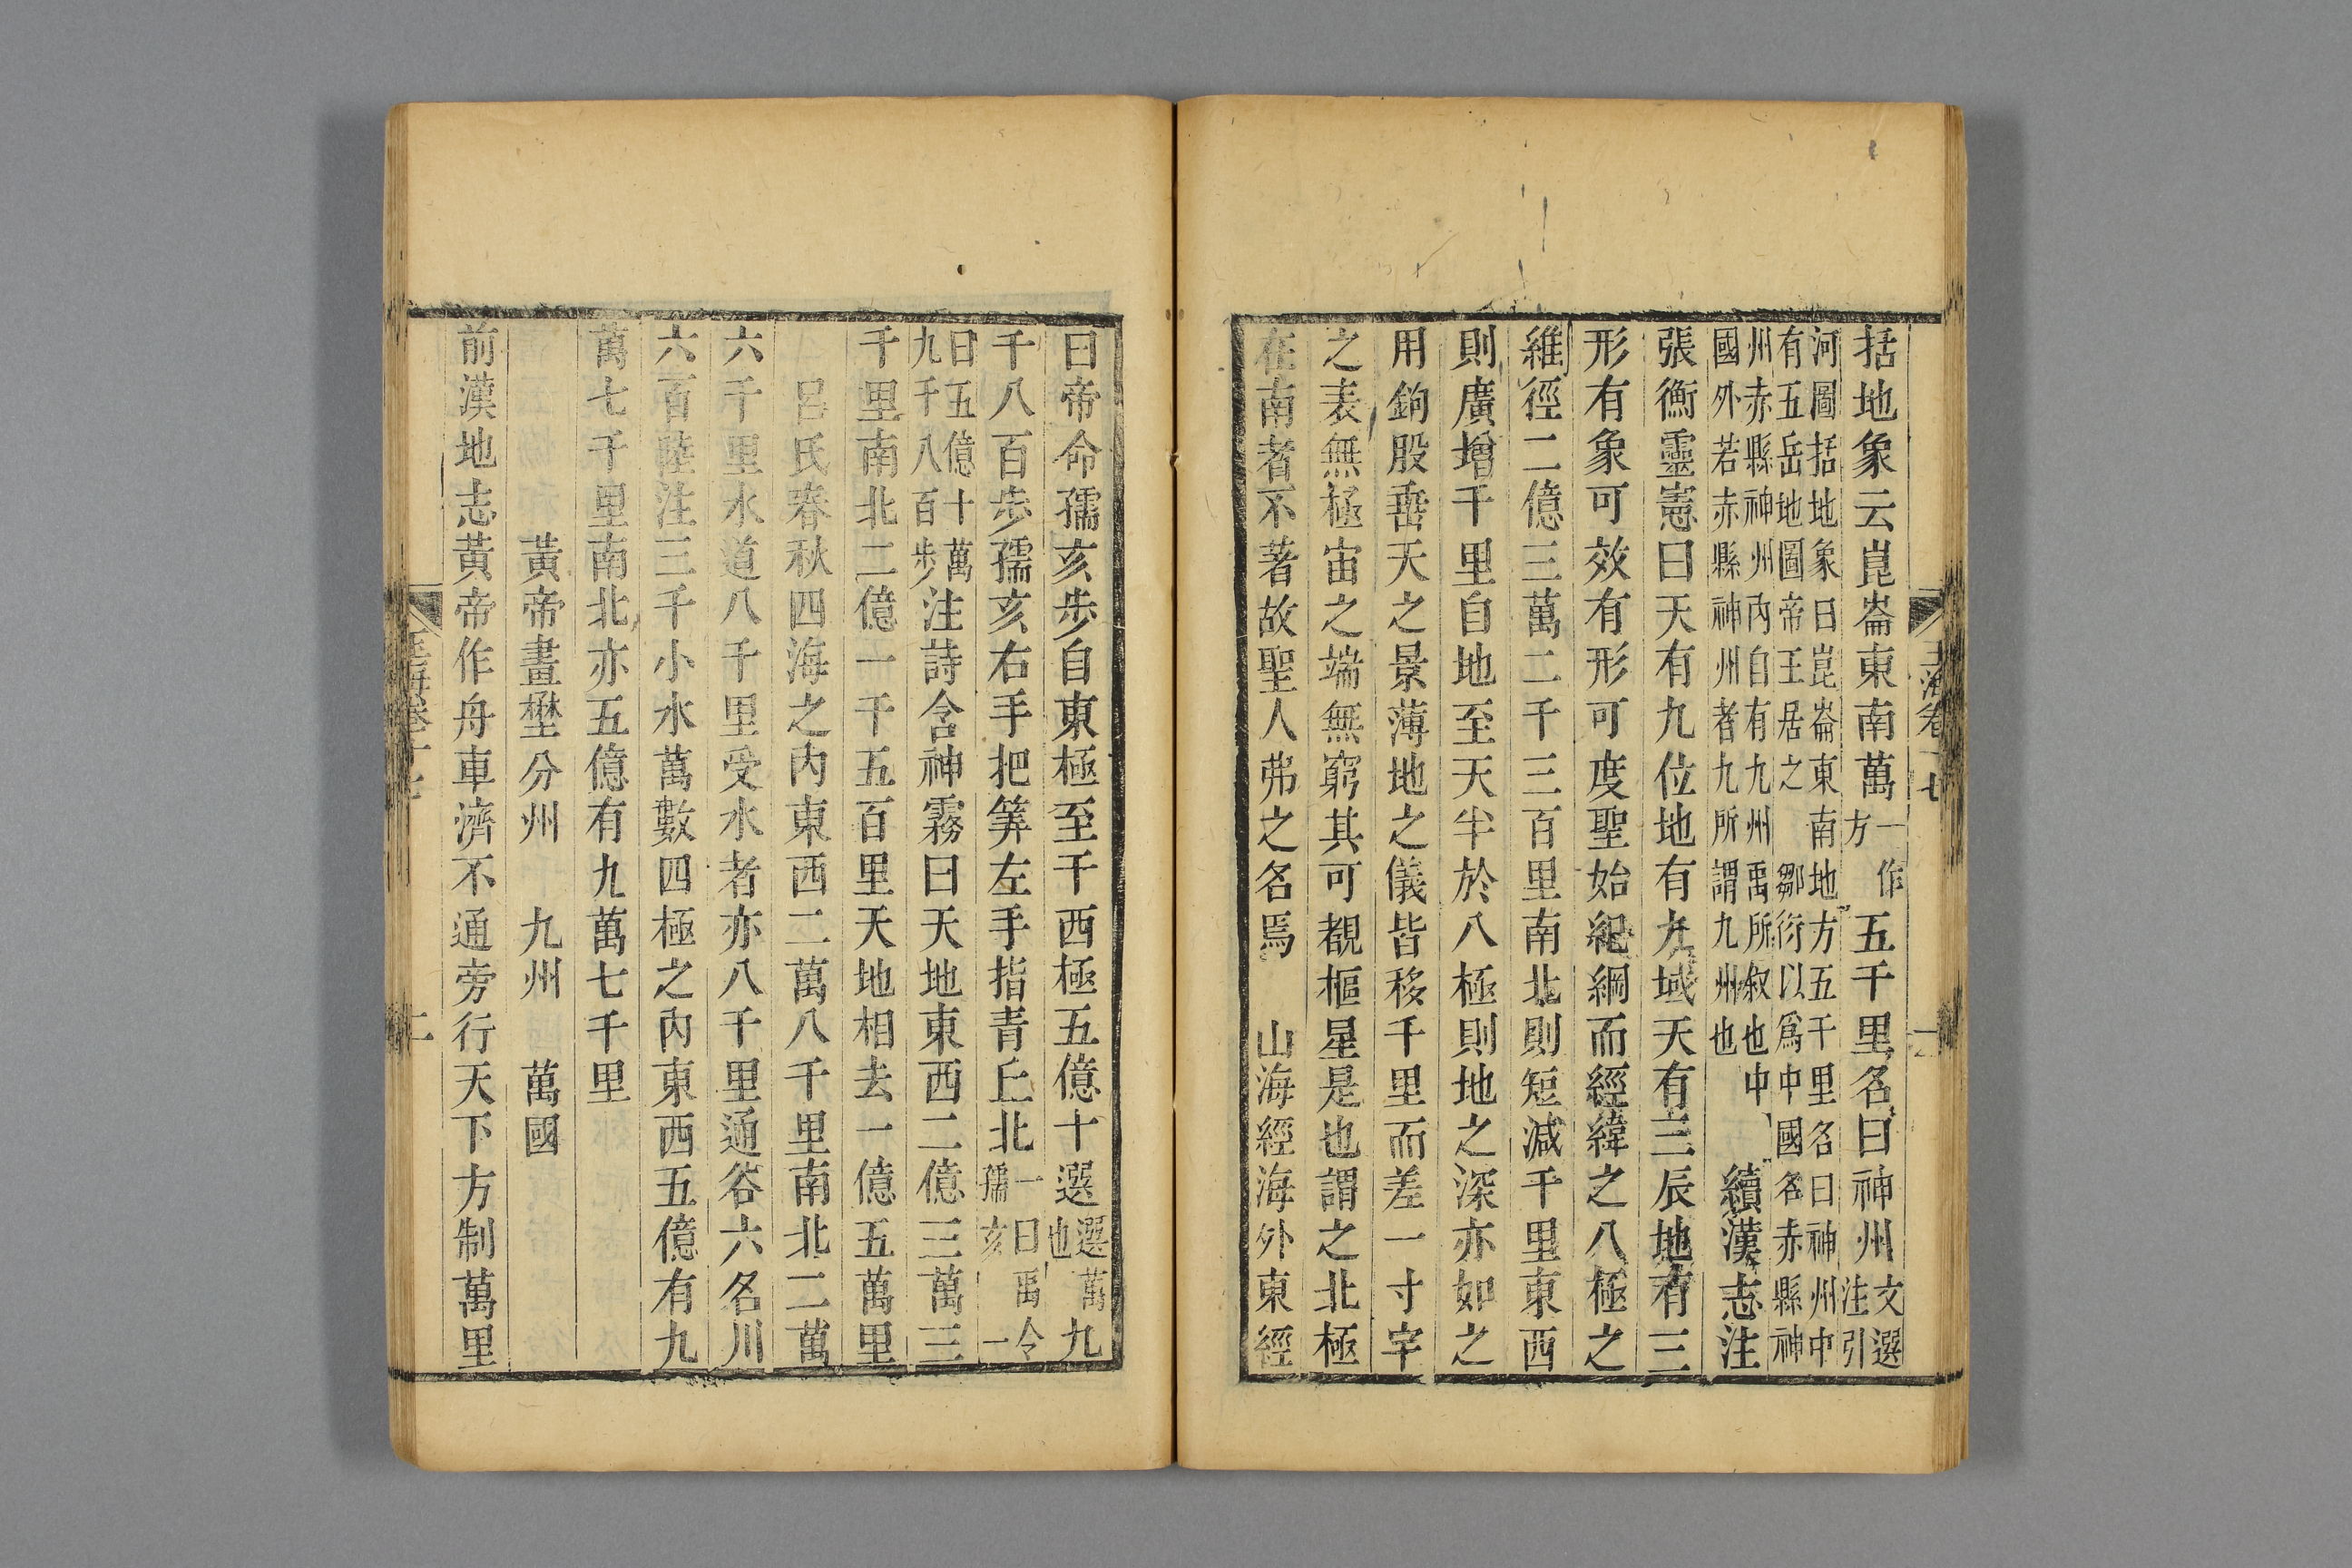 括地象云崑崙東南萬一作方五千里名曰神州文選注引
河圖括地象曰崑崙東南地方五千里名曰神州中
有五岳地圖帝王居之 鄒衍以爲中國名赤縣神
州赤縣神州內自有九州禹所敘也中
國外若赤縣神州者九所謂九州也
續漢志注
張衡靈憲曰天有九位地有九域天有三辰地有三
形有象可效有形可度聖始紀綱而經緯之八極之
維徑二億三萬二千三百里南北則短減千里東西
則廣增千里自地至天半於八極則地之深亦如之
用鉤股垂天之景薄地之儀皆移千里而差一寸宇
之表無極宙之端無窮其可覩樞星是也謂之北極
在南者不著故聖人弗之名焉 山海經海外東經
玉海卷十七
曰帝命孺亥步自東極至于西極五億十選選萬也九
千八百步孺亥右手把筭左手指青丘北一曰禹令孺亥一
曰五億十萬九千八百步注詩含神霧曰天地東西二億三萬三
千里南北二億一千五百里天地相去一億五萬里
呂氏春秋四海之內東西二萬八千里南北二萬
六千里水道八千里受水者亦八千里通谷六名川
六百陸注三千小水萬數四極之內東西五億有九
萬七千里南北亦五億有九萬七千里
黃帝畫壄分州 九州 萬國
前漢地志黃帝作舟車濟不通旁行天下方制萬里
玉海卷十七
二